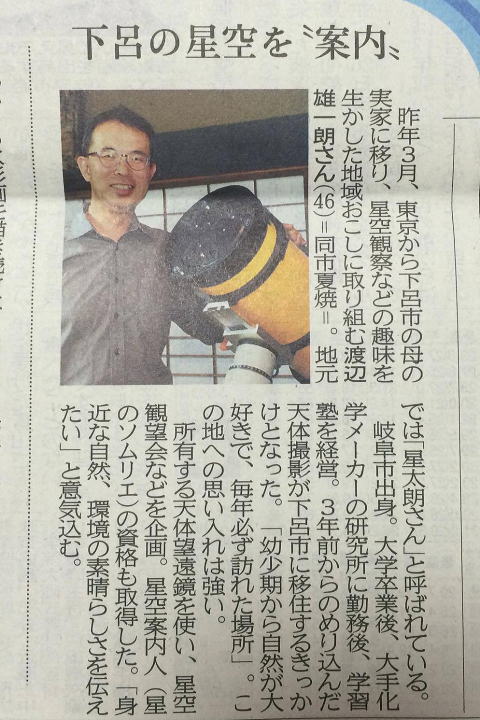 下呂の星空を〝案内〟
昨年3月、東京から下呂市の母の
実家に移り、星空観察などの趣味を
生かした地域おこしに取り組む渡辺
雄一朗さん(46)=同市夏焼=。地元
では「星太朗さん」と呼ばれている。
岐阜市出身。大学卒業後、大手化
学メーカーの研究所に勤務後、学習
塾を経営。3年前からのめり込んだ
天体撮影が下呂市に移住するきっか
けとなった。「幼少期から自然が大
好きで、毎年必ず訪れた場所」。こ
の地への思い入れは強い。
所有する天体望遠鏡を使い、星空
観望会などを企画。星空案内人(星
のソムリエ)の資格も取得した。「身
近な自然、環境の素晴らしさを伝え
たい」と意気込む。